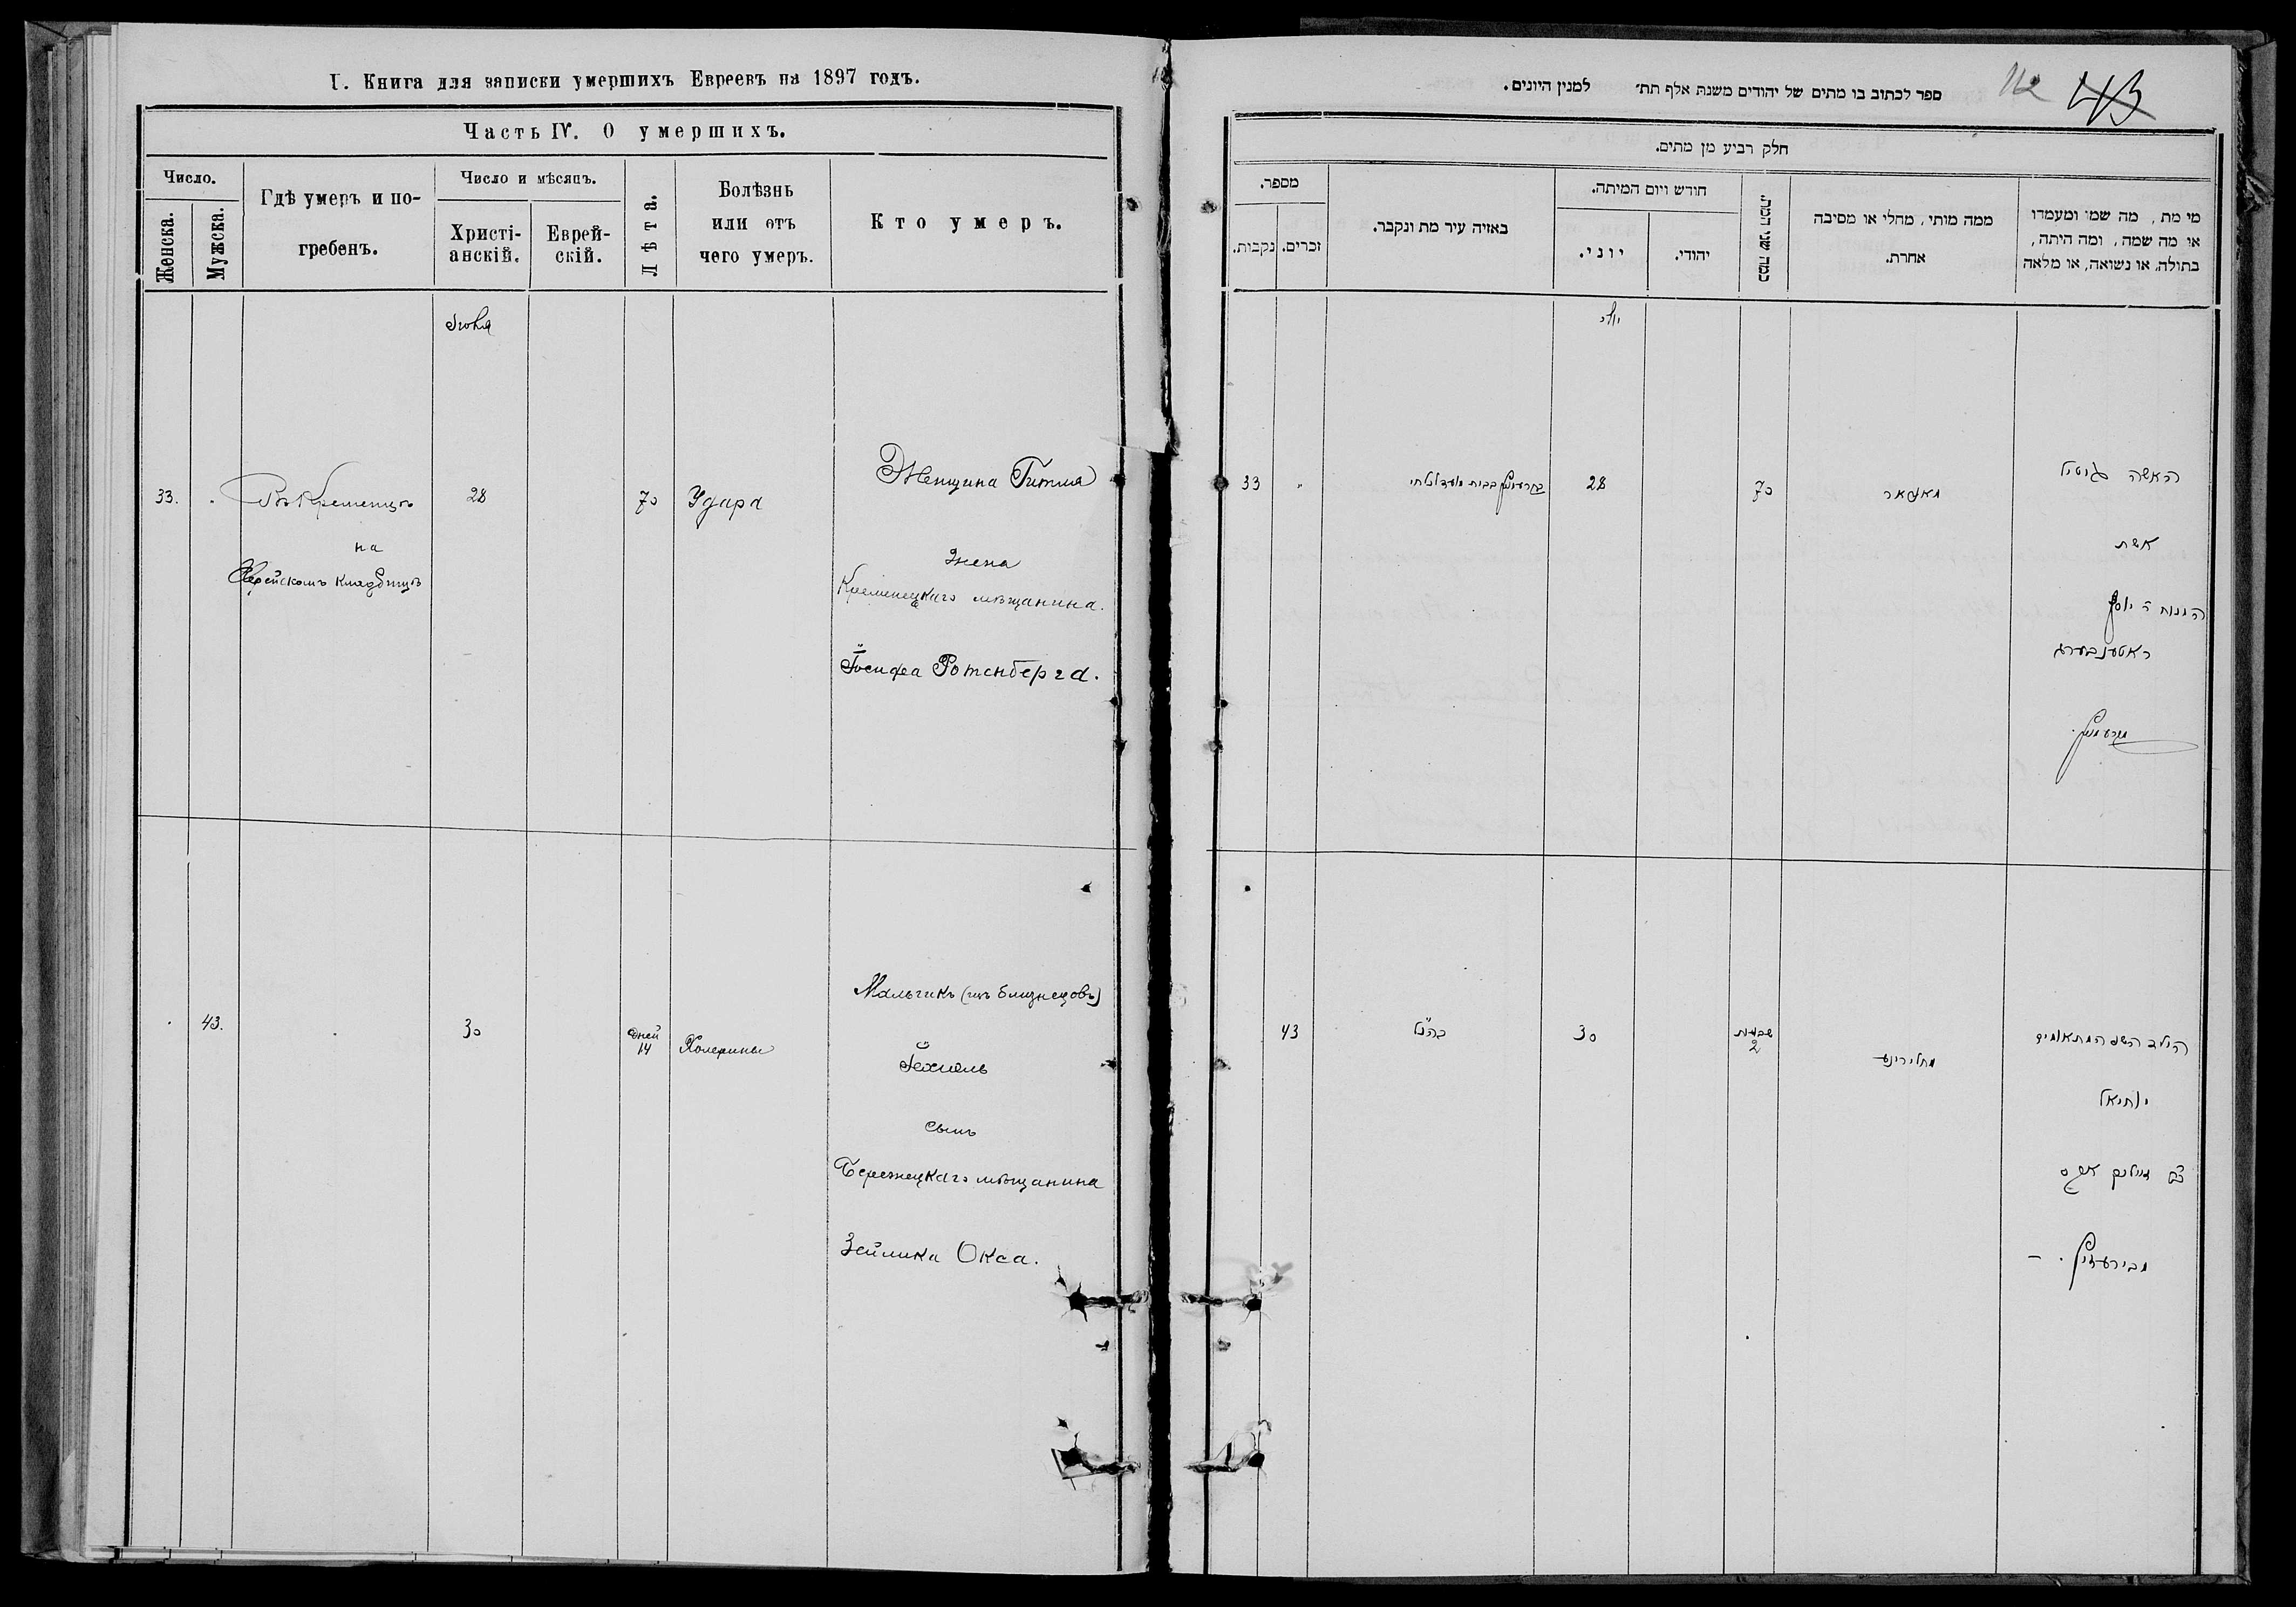 I. Книга для записки умершихъ Евреевъ на 1897 годъ.
Часть IV. О умершихъ.
Число.
Женска.
Мужска.
Гдѣ умеръ и по-
гребенъ.
Число и мѣсяцъ.
Христі-
анскій.
Еврей-
скій.
Лѣта.
Болѣзнь
или отъ
чего умеръ.
Кто умеръ.
Іюля
33.
Въ Кременцѣ
на
Еврейскомъ кладбищѣ
28
70
Удара
Женщина Гитля
Жена
Кременецкаго мѣщанина.
Іосифа Ротенберга.
43.
30
дней
14
Холерины
Мальчикъ (изъ близнецовъ)
Іехиель
сынъ
Бережецкаго мѣщанина
Зейлика Окса.
ספר לכתוב בו מתים של יהודים משנת אלף תת׳ למנין היונים.
43
חלק רביע מן מתים.
מספר.
נקבות.
זכרים.
באיזה עיר מת ונקבר.
חודש ויום המיתה.
יוני.
יהודי.
כמה שני המת.
ממה מותי, מחלי או מסיבה
אחרת.
מי מת, מה שמו ומעמדו
או מה שמה, ומה היתה,
בתולה, או נשואה, או מלאה
יולי
33
28
70
האשה גיטיל
אשת
המנוח ר׳ יוסף
ראטענבערג
43
כהנ״ל
30
שבועות
2
מחלירינע
יחיאל